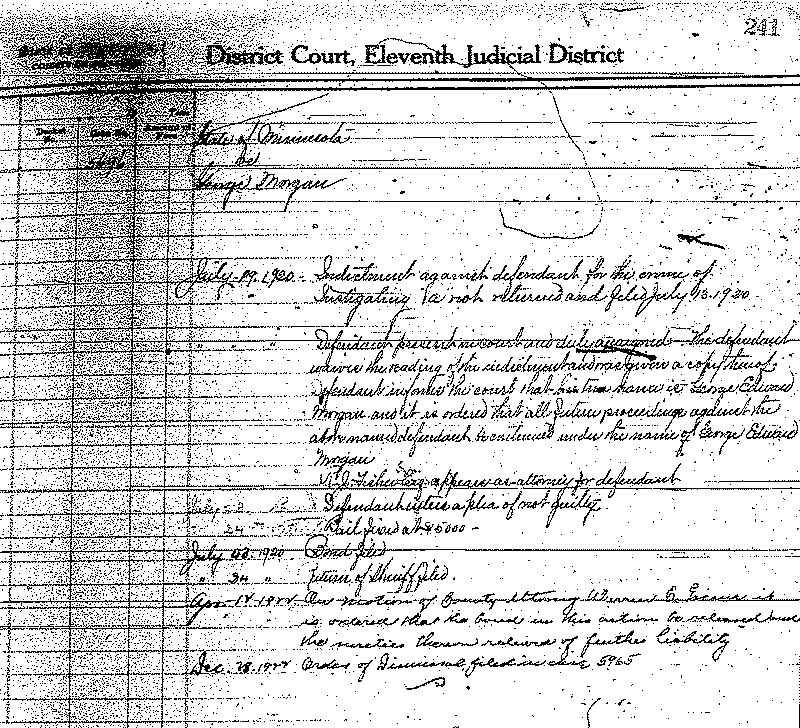 241
District Court, Eleventh Judicial District
State of Minnesota
vs
George Morgan
July 19, 1920 - Indictment against defendant for the crime of
Instigating a riot returned and filed July 13 1920
" " " Defendant present in court and duly arraigned - The defendant
waives the reading of the indictment and was given a copy thereof
defendant informs the court that his true name is George Edward
Morgan and it is ordered that all future proceedings against the
above named defendant be continued under the name of George Edward
Morgan
Fisher Esq. appears as attorney for defendant
July Defendant enters a plea of not guilty.
24 Bail fixed at $5000 -
July 1920 Bond filed
" 24 " Return of Sheriff filed.
Apr 14 1922 On motion of County Attorney Warren E. Greene it
is ordered that the bond in this action be released and
the sureties thereon relieved of further liability
Dec. 28, 1922 Order of Dismissal filed in case 5965